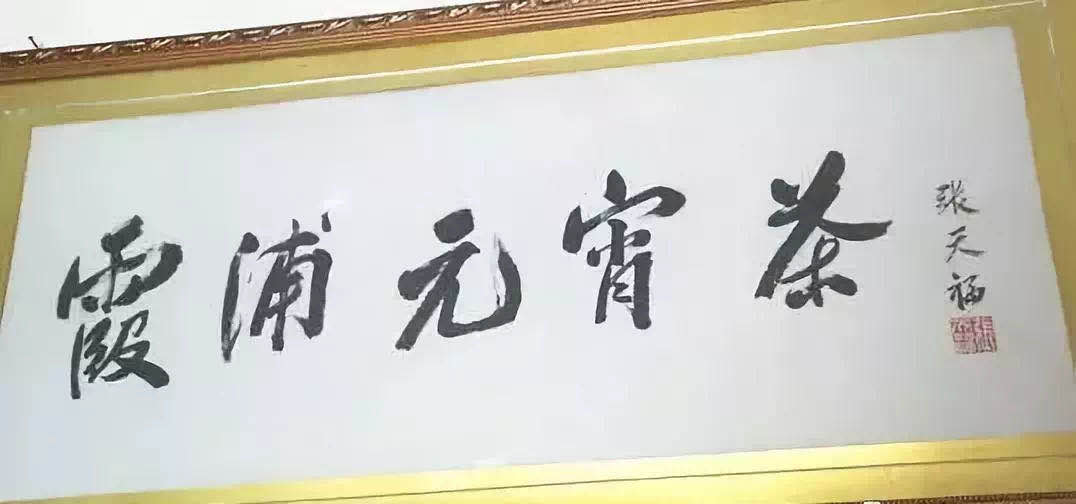 霞浦元宵茶
张天福